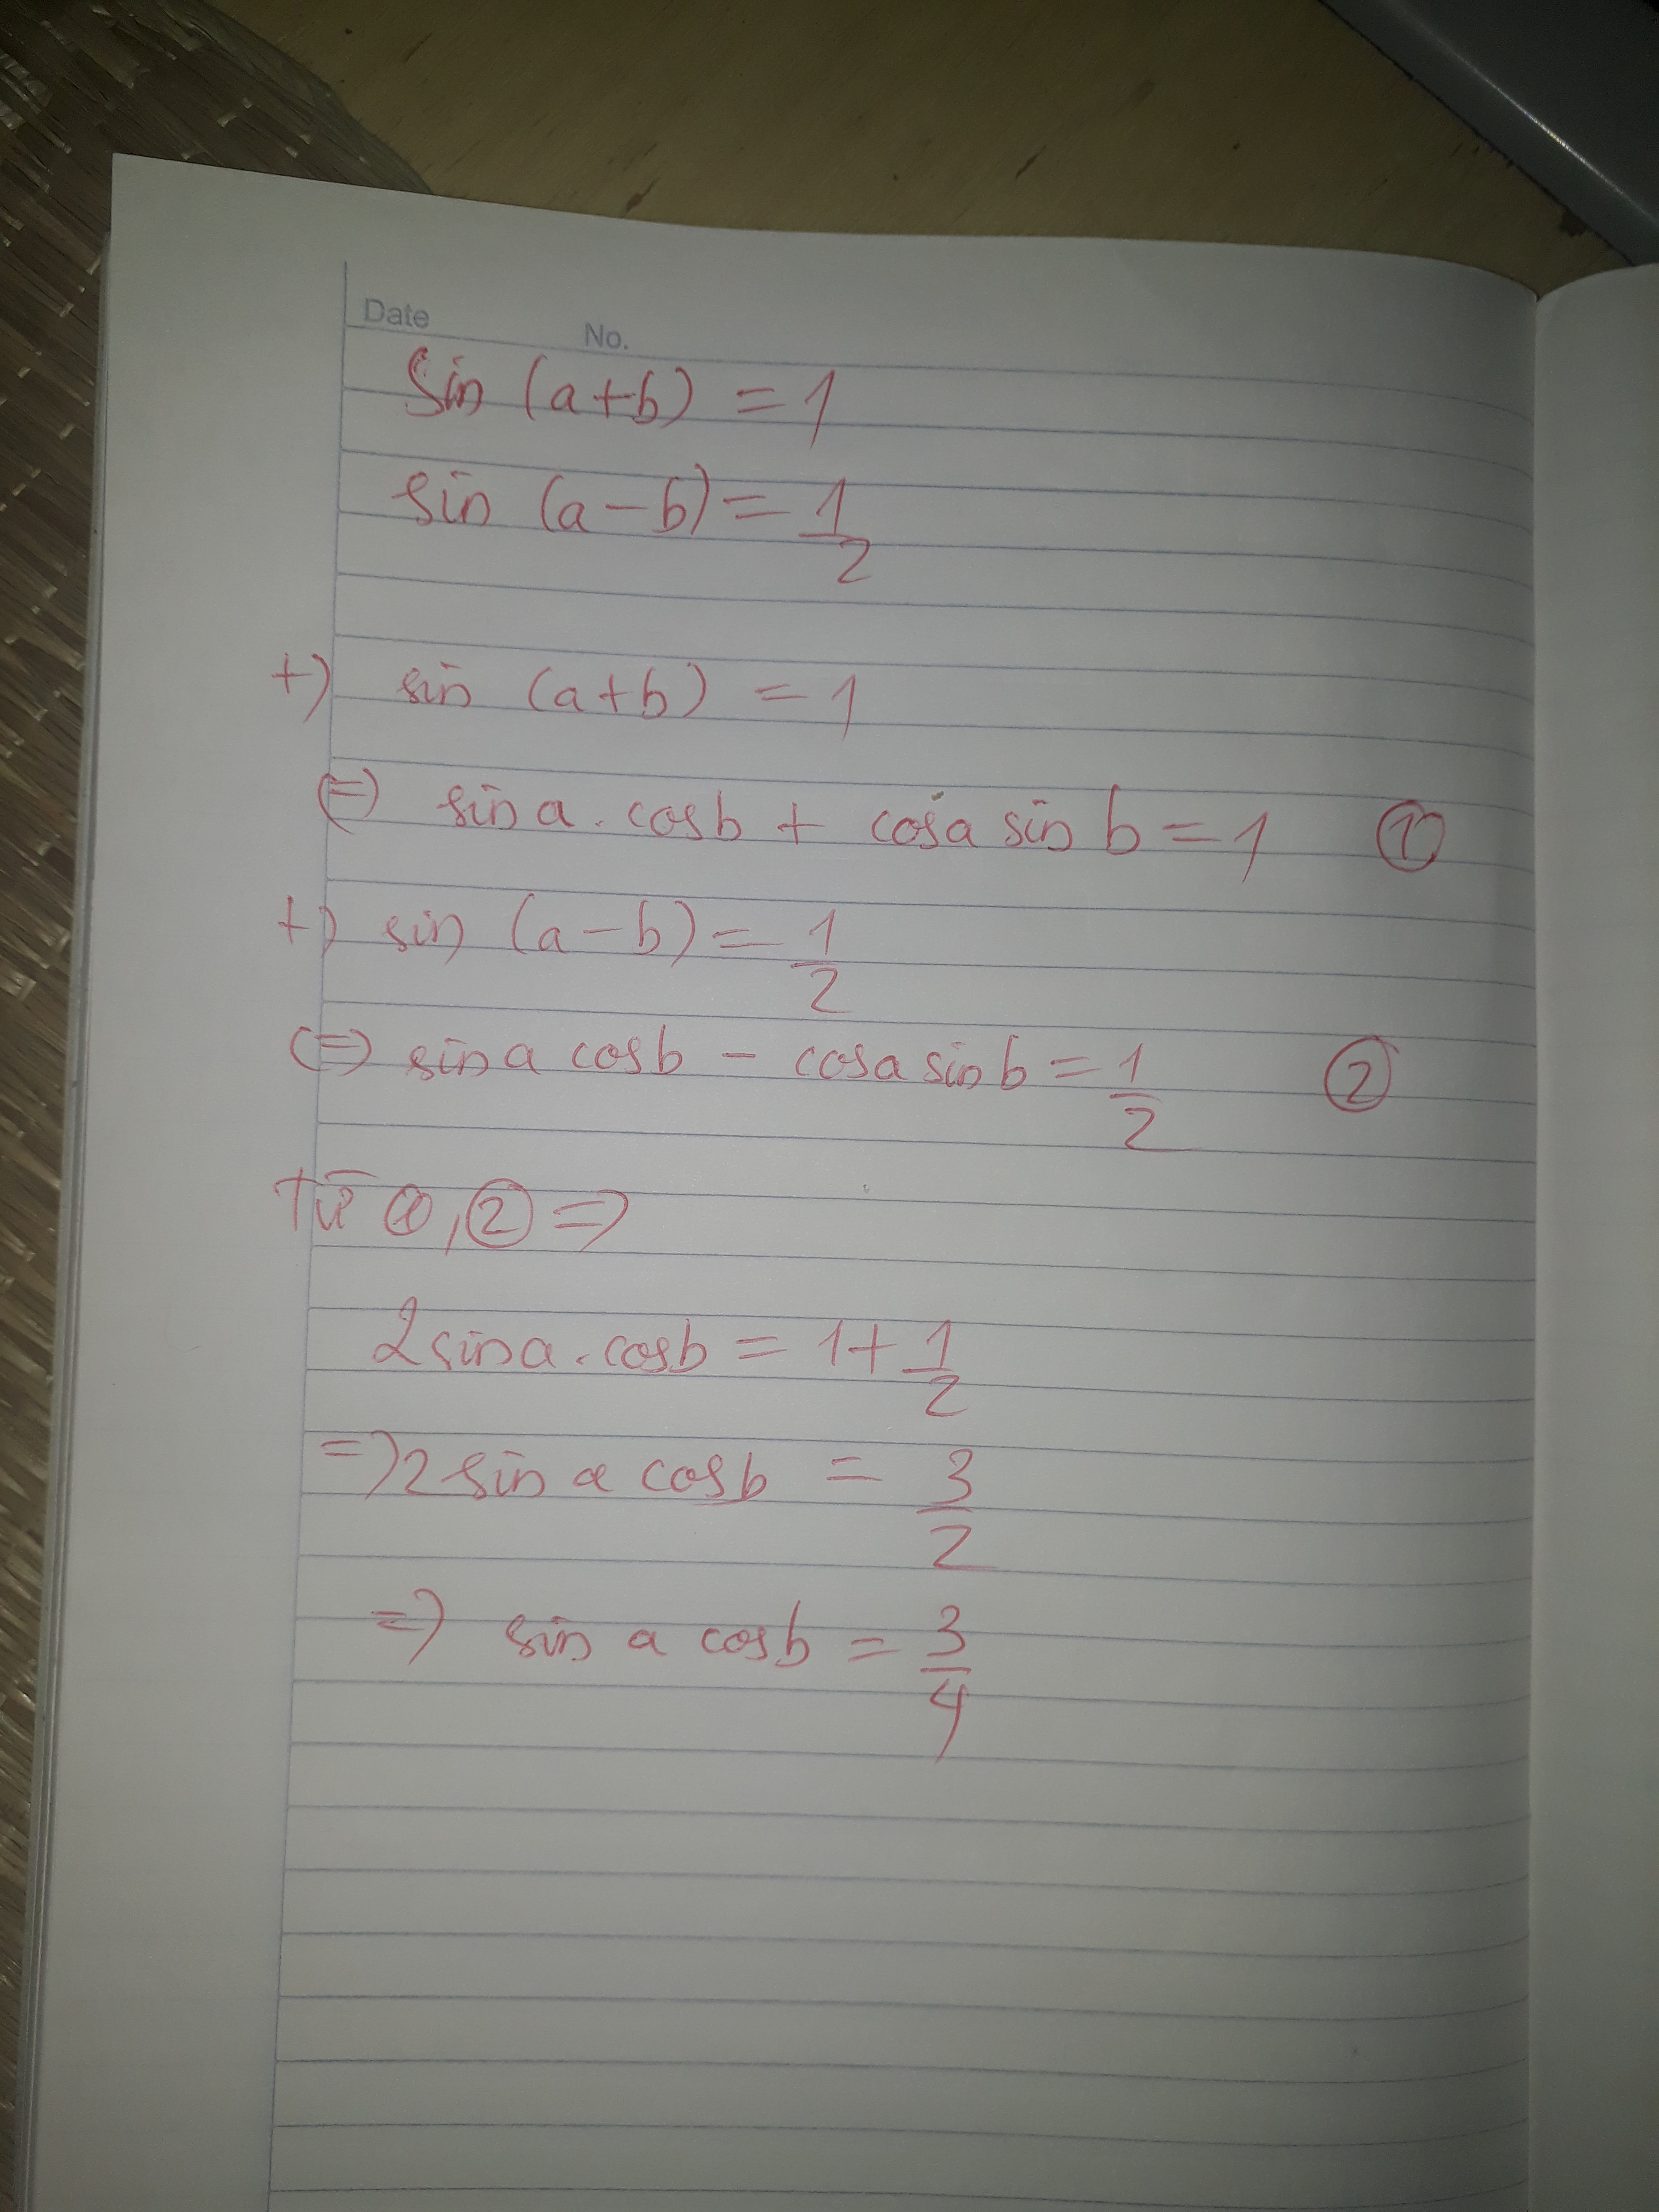 Date No.
Sin (a+b) = 1
sin (a-b) = 1/2
+) sin (a+b) = 1
(=) sin a . cosb + cosa sin b = 1 ①
+) sin (a-b) = 1/2
(=) sin a cosb - cosa sin b = 1/2 ②
Từ ①, ② =>
2 sin a . cosb = 1 + 1/2
=) 2 sin a cosb = 3/2
=) sin a cosb = 3/4